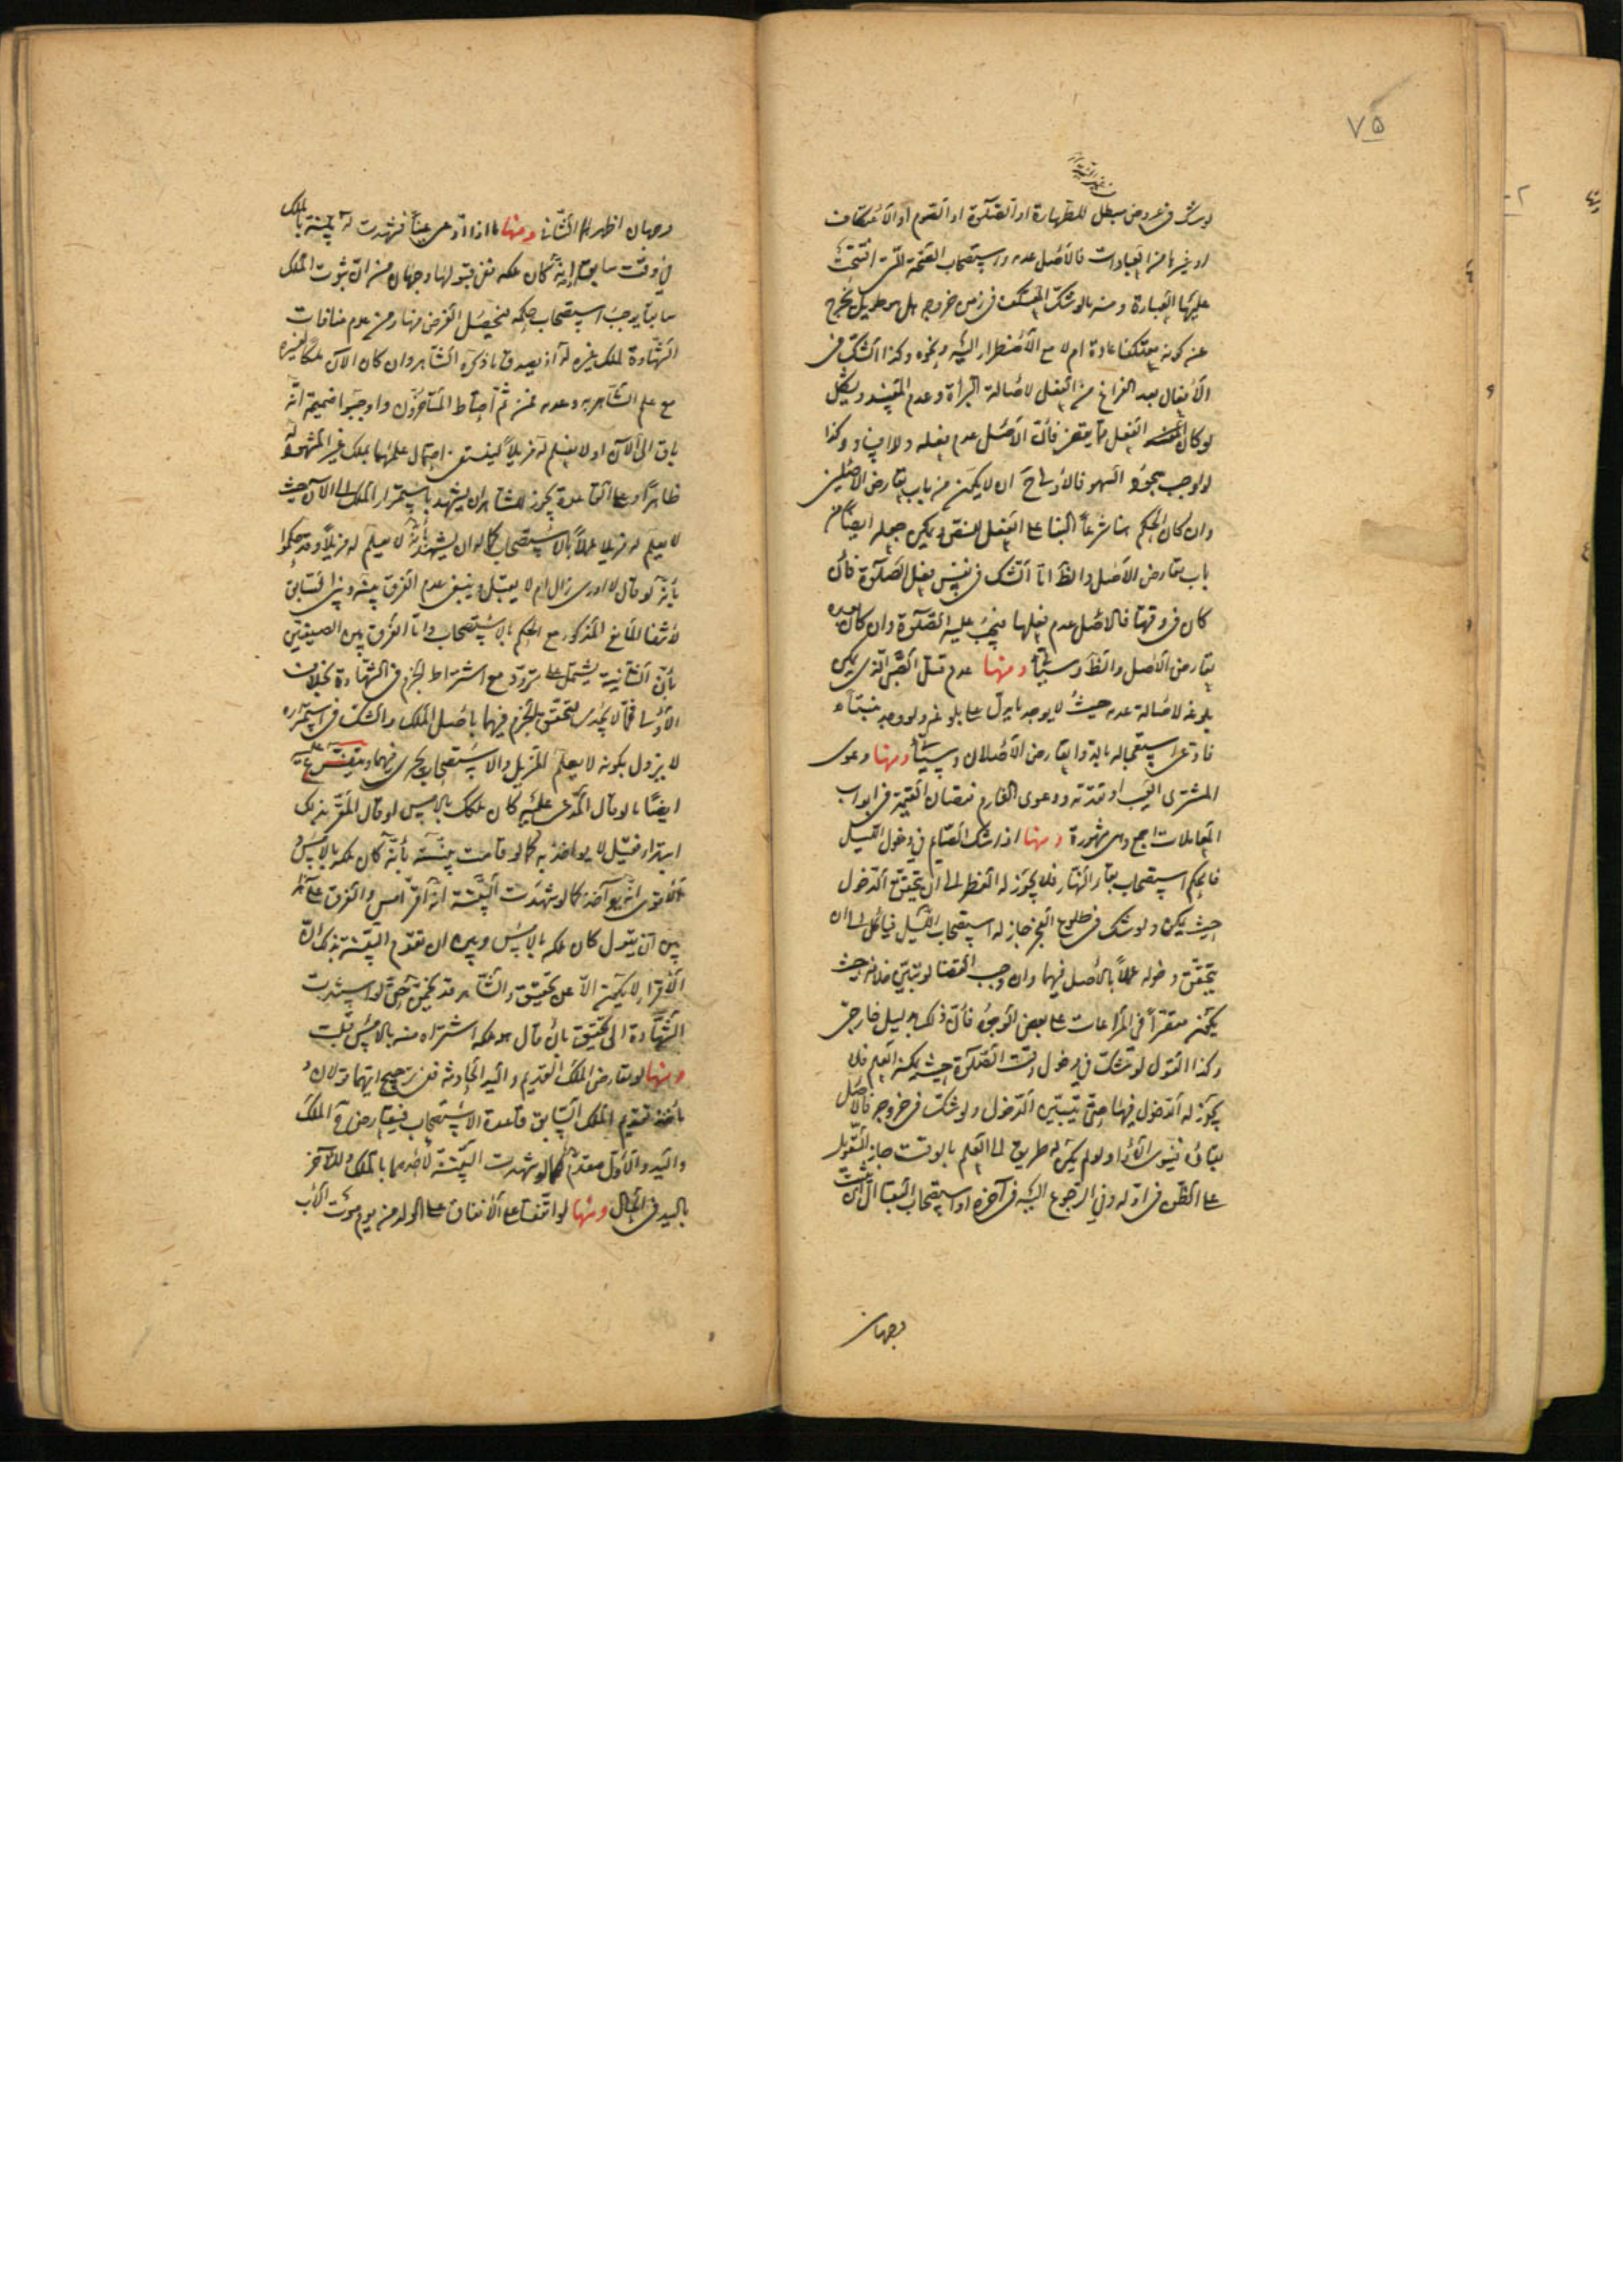 ٧۵
لو شك فى عروض مبطل للطهارة او الصّلوة او الصّوم او الاعتكاف
او غيرها من العبادات فالاصل عدمه واستصحاب الصّحة التى افتتحت
عليها العبادة ومنه ما لو شك المعتكف فى زمن خروجه هل هو طويل يخرج
عن كونه معتكفا عادة ام لا مع الاضطرار اليه ونحوه وكذا الشك فى
الافعال بعد الفراغ من الفعل لاصالة البرأة وعدم المفسد ويشكل
لو كان الفعل ممّا يقضى فانّ الاصل عدم فعله وكذا
لو اوجب سجود السهو فالاولى ح ان لا يكون من باب تعارض الاصلين
وان كان الحكم هنا شرعاً البنا على الفعل للنص ويمكن جعله ايضاً من
باب تعارض الاصل والظ امّا الشك فى نفس فعل الصّلوة فان
كان فى وقتها فالاصل عدم فعلها فيجب عليه الصّلوة وان كان بعده
تعارض الاصل والظ وسيأتى ومنها عدم قتل الصّبى الّذى يمكن
بلوغه لاصالة عدمه حيث لا يوجد ما يدلّ على بلوغه ولو وجد منبتاه
فادعى استعجاله بالدوا تعارض الاصلان وسيأتى ومنها دعوى
المشترى العيب او تقدّمه ودعوى الغارم نقصان القيمة فى ابواب
المعاملات اجمع وهى مشهورة ومنها اذا شك الصّايم فى دخول الليل
فالحكم استصحاب بقاء النّهار فلا يجوز له الفطر الى ان يتحقق الدّخول
حيث يمكن ولو شك فى طلوع الفجر جاز له استصحاب اللّيل فيأكل الى ان
يتحقّق دخوله عملاً بالاصل فيهما وان وجب القضا لو تبيّن خلافه حيث
يكون مقصّراً فى المراعات على بعض الوجوه فانّ ذلك بدليل خارجى
وكذا القول لو شك فى دخول وقت الصّلوة حيث يمكنه العلم فلا
يجوز له الدّخول فيها حتّى يتبيّن الدّخول ولو شك فى خروجه فالاصل
بقاؤه فينوى الاداء ولو لم يكن له طريق الى العلم بالوقت جاز التعويل
على الظّن فى اوّله وفى الرّجوع اليه فى آخره او استصحاب البقا الثابت
وجهان
وجهان اظهرهما الثّانى ومنها ما اذا ادّعى عيناً فشهدت له بيّنة بالملك
فى وقت سابق او انّه كان ملكه ففى قبولها وجهان من انّ ثبوت الملك
سابقاً يوجب استصحاب حكمه فيحصل الغرض منها ومن عدم منافات
الشّهادة لملك غيره له اذ يصدق ما ذكره الشاهد وان كان الآن ملكاً لغيره
مع علم الشاهد به وعدمه فمن ثمّ احتاط المتأخّرون واوجبوا ضميمة انّه
باق الى الآن او لا يعلم له مزيلاً لينتفى احتمال علمهما بملك غير المشهود له
ظاهراً وعلى القاعدة يجوز للشاهد ان يشهد باستمرار الملك الى الآن حيث
لا يعلم له مزيلا عملاً بالاستصحاب كما له ان يشهد بأنّه لا يعلم له مزيلاً وقد حكموا
بأنّه لو قال لا ادرى زال ام لا لا يقبل وينبغى عدم الفرق بينه وبين السّابق
لانتفا المانع المذكور مع الحكم بالاستصحاب وامّا الفرق بين الصيغتين
بأنّ الثانية يشتمل على تردّد مع اشتراط الجزم فى الشّهادة بخلاف
الاولى فممّا لا يجدى لتحقق الجزم فيهما باصل الملك والشك فى استمراره
لا يزول بكونه لا يعلم المزيل والاستصحاب يجرى فيهما ويتفرّع عليه
ايضاً ما لو قال المدّعى عليه كان ملكك بالامس لو قال المقرّ بذلك
ابتداء فقيل لا يواخذ به كما لو قامت بيّنة بأنّه كان ملكه بالامس و
الاقوى انّه يؤاخذ كما لو شهدت البيّنة انّه اقرّ امس والفرق على هذا
بين ان يقول كان ملكه بالامس وبين ان تقوم البيّنة بذلك انّ
الاقرار لا يكون الّا عن تحقيق والشّاهد قد يخمّن حتّى لو استندت
الشّهادة الى تحقيق بان قال هو ملكه اشتراه منه بالامس قبلت
ومنها لو تعارض الملك القديم واليد الحادثة ففى ترجيح ايّهما قولان و
مأخذ تقديم الملك السّابق قاعدة الاستصحاب فيتعارض فى الملك
واليد والاوّل مقدّم كما لو شهدت البيّنة لاحدهما بالملك وللآخر
باليد فى الحال ومنها لو اتفقا على الانفاق على الولد من يوم موت الاب